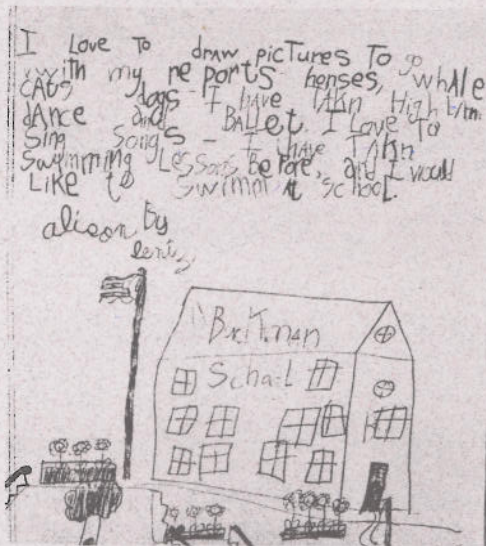 I Love To draw picTures To go
with my reports henses, whAle
CATs dogs - I have TAkn High
dAnce and BALLeT. I Love To
Sing Songs - I have TAkn
Swimming Lessons Before, and I would
LiKe to Swimm At School.
alison by
School